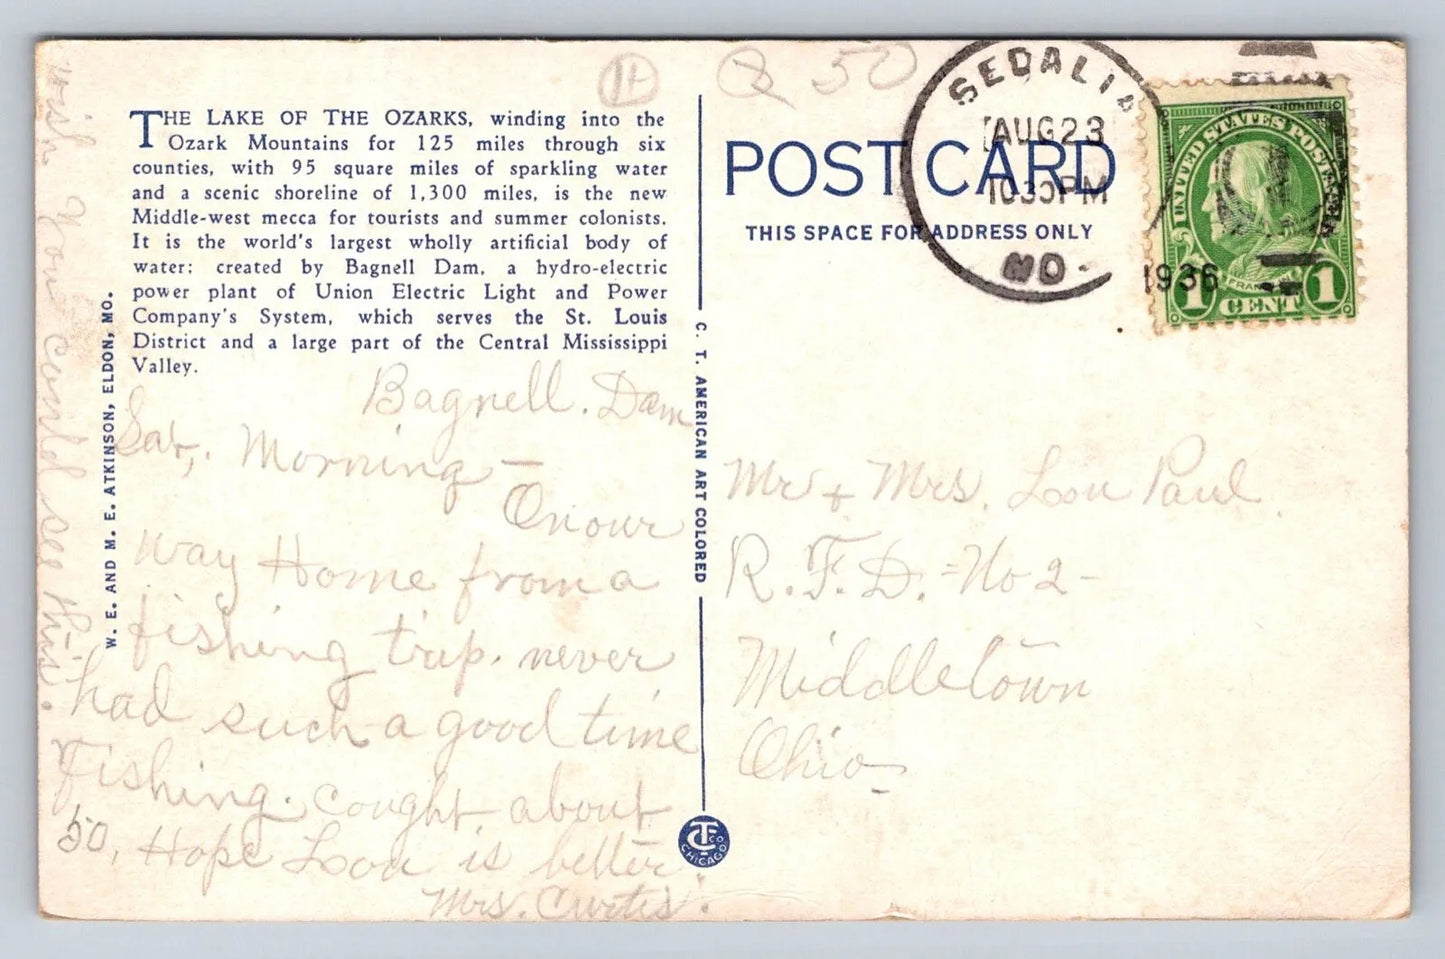 wish you could see this.
H
50
THE LAKE OF THE OZARKS, winding into the
Ozark Mountains for 125 miles through six
counties, with 95 square miles of sparkling water
and a scenic shoreline of 1,300 miles, is the new
Middle-west mecca for tourists and summer colonists.
It is the world's largest wholly artificial body of
water: created by Bagnell Dam, a hydro-electric
power plant of Union Electric Light and Power
Company's System, which serves the St. Louis
District and a large part of the Central Mississippi
Valley.
W. E. AND M. E. ATKINSON, ELDON, MO.
Bagnell. Dam
Sat,. Morning –
On our
way Home from a
fishing trip. never
had such a good time
Fishing. cought about
50, Hope Lou is better.
Mrs. Curtis.
C. T. AMERICAN ART COLORED
CTCO
CHICAGO
POST CARD
THIS SPACE FOR ADDRESS ONLY
SEDALIA
AUG 23
1030PM
MO.
1936
UNITED STATES POSTAGE
FRANKLIN
1 CENT 1
Mr + Mrs. Lou Paul.
R.F.D. = No 2 -
Middletown
Ohio